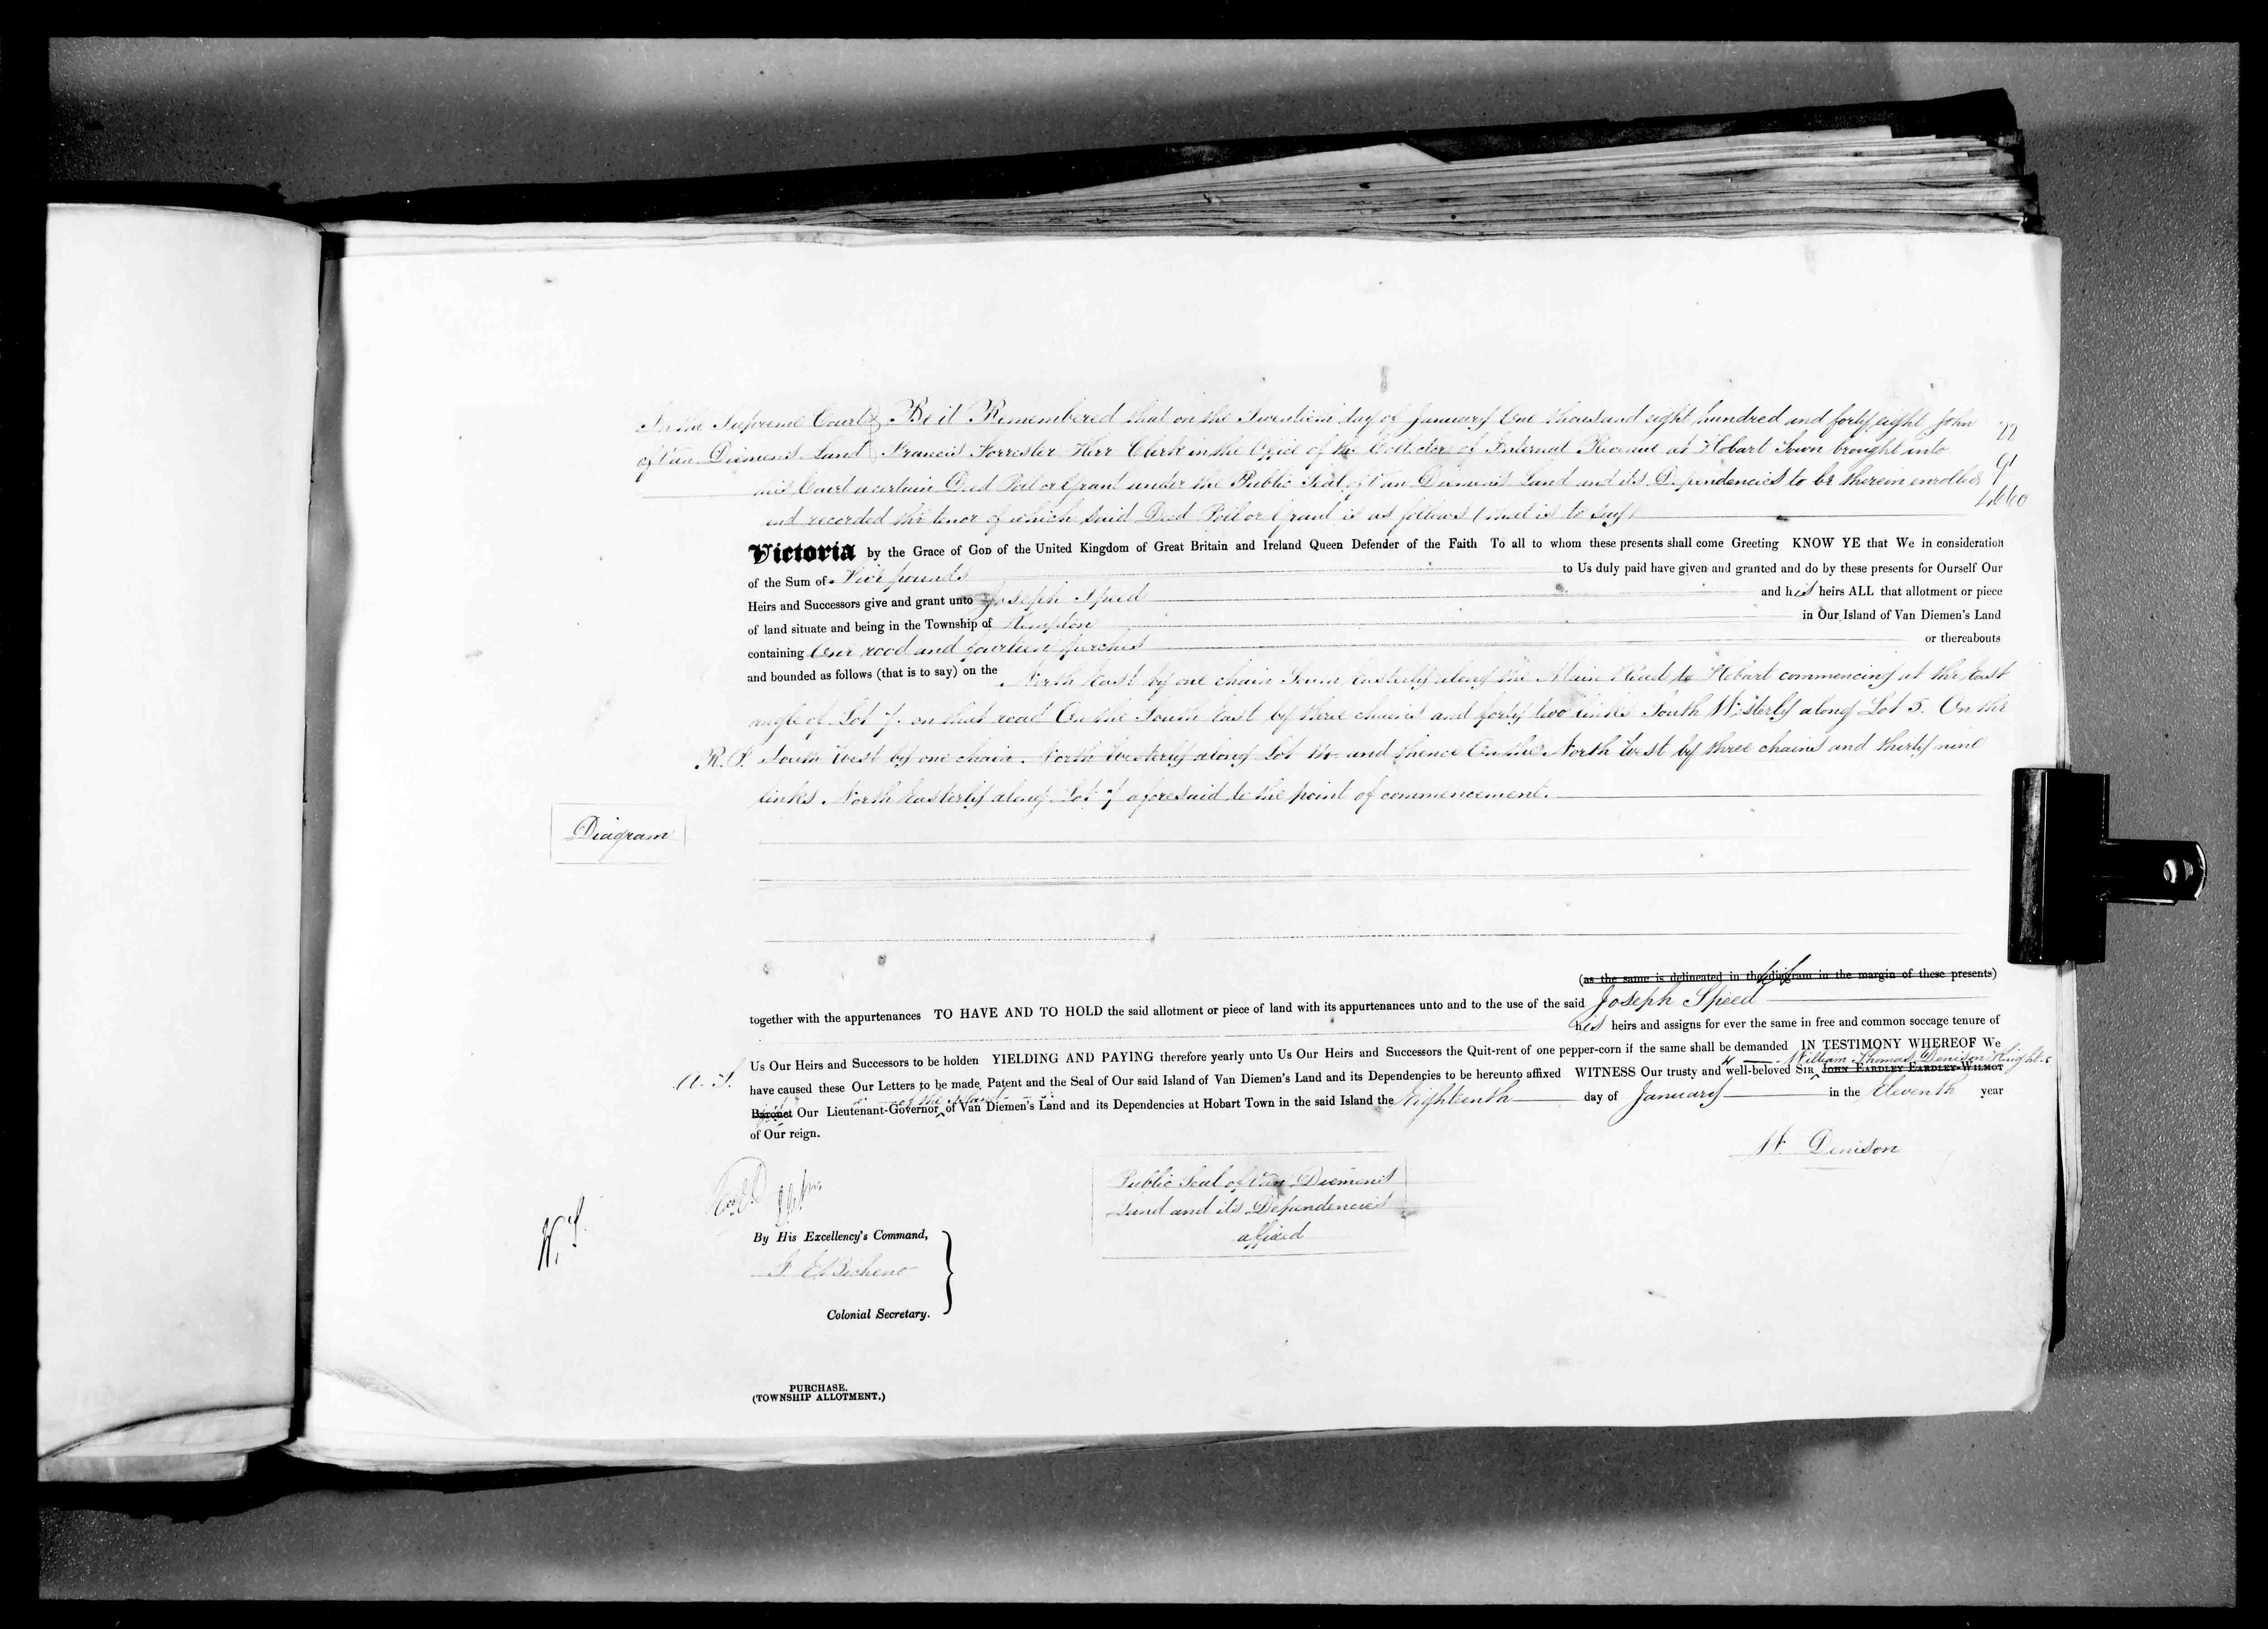 In the Supreme Court Be it Remembered that on the Twentieth day of January One thousand eight hundred and forty eight John
of Van Diemen's Land Francis Forrester Herr Clerk in the Office of the Collector of Internal Revenue at Hobart Town brought into
this Court a certain Deed Poll or Grant under the Public Seal of Van Diemen's Land and its Dependencies to be therein enrolled
and recorded the tenor of which said Deed Poll or Grant is as follows (that is to say)
22
91
4660
Victoria by the Grace of God of the United Kingdom of Great Britain and Ireland Queen Defender of the Faith To all to whom these presents shall come Greeting KNOW YE that We in consideration
of the Sum of Five pounds to Us duly paid have given and granted and do by these presents for Ourself Our
Heirs and Successors give and grant unto Joseph Speed and his heirs ALL that allotment or piece
of land situate and being in the Township of Kempton in Our Island of Van Diemen's Land
containing One rood and fourteen perches or thereabouts
and bounded as follows (that is to say) on the North East by one chain South Easterly along the Main Road to Hobart commencing at the East
angle of Lot 7. on that road On the South East by three chains and forty two links South Westerly along Lot 5. On the
R.P. South West by one chain. North Westerly along Lot 14 and thence On the North West by three chains and thirty nine
links. North Easterly along Lot 7 aforesaid to the point of commencement.
Diagram
(as the same is delineated in the diagram in the margin of these presents)
together with the appurtenances TO HAVE AND TO HOLD the said allotment or piece of land with its appurtenances unto and to the use of the said Joseph Speed
his heirs and assigns for ever the same in free and common soccage tenure of
Us Our Heirs and Successors to be holden YIELDING AND PAYING therefore yearly unto Us Our Heirs and Successors the Quit-rent of one pepper-corn if the same shall be demanded IN TESTIMONY WHEREOF We
William Thomas Denison Knight
have caused these Our Letters to be made Patent and the Seal of Our said Island of Van Diemen's Land and its Dependencies to be hereunto affixed WITNESS Our trusty and well-beloved Sir John Eardley Eardley-Wilmot
of the Island
Baronet Our Lieutenant-Governor of Van Diemen's Land and its Dependencies at Hobart Town in the said Island the Eighteenth day of January in the Eleventh year
of Our reign.
W. Denison
Public Seal of Van Diemen's
Land and its Dependencies
affixed
By His Excellency's Command,
J. E. Bicheno
Colonial Secretary.
PURCHASE.
(TOWNSHIP ALLOTMENT.)